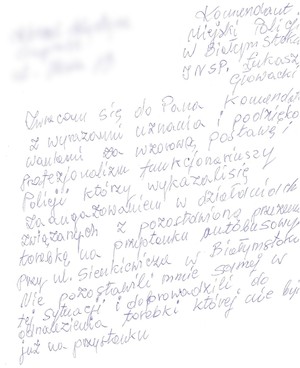 Komendant
Miejski Policji
w Białymstoku
insp. Łukasz
Głowacki
Zwracam się do Pana Komendanta
z wyrazami uznania i podzięko
waniami za wzorową postawę i
profesjonalizm funkcjonariuszy
Policji którzy wykazali się
zaangażowaniem w działaniach
związanych z pozostawioną przeze mnie
torebką na przystanku autobusowym
przy ul. Sienkiewicza w Białymstoku
Nie pozostawili mnie samej w
tej sytuacji i doprowadzili do
odnalezienia torebki której nie było
już na przystanku